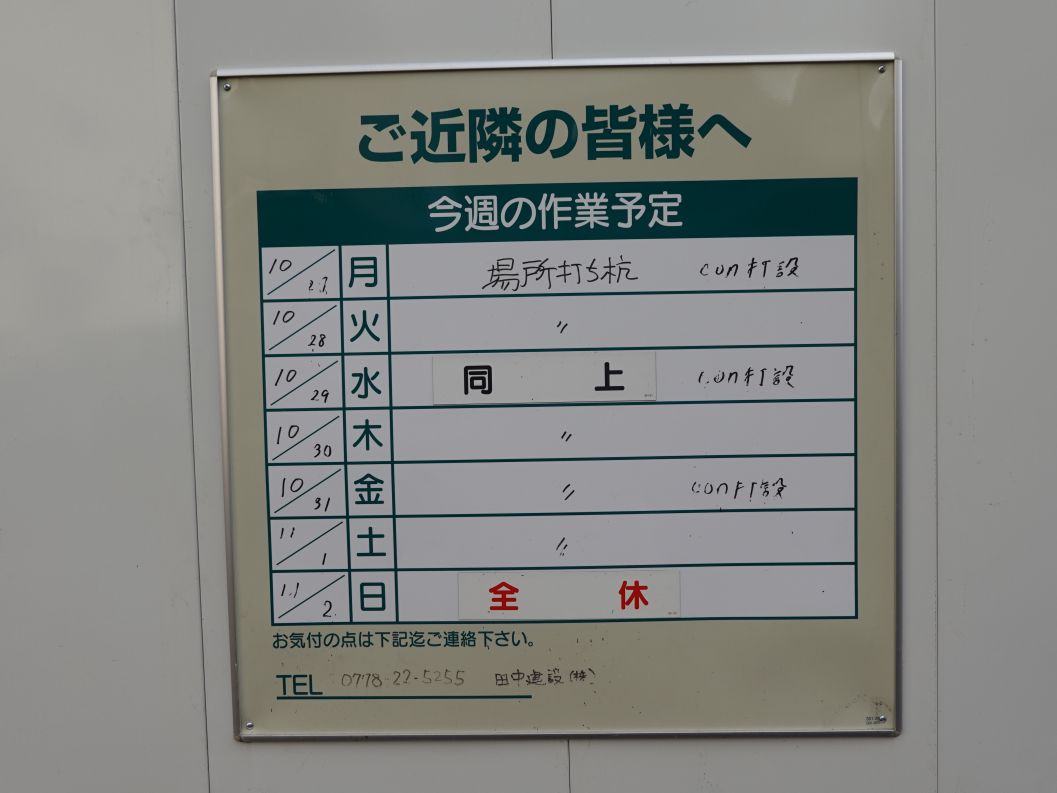 ご近隣の皆様へ
今週の作業予定
10/27 月 場所打ち杭 con打設
10/28 火 〃
10/29 水 同 上 con打設
10/30 木 〃
10/31 金 〃 con打設
11/1 土 〃
11/2 日 全 休
お気付の点は下記迄ご連絡下さい。
TEL 0778-22-5255 田中建設(株)